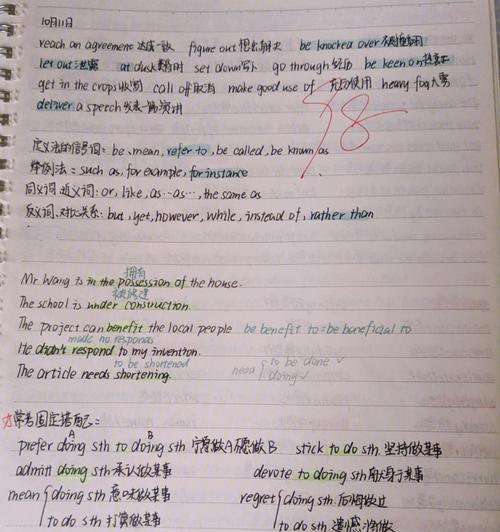 10月11日
reach an agreement 达成一致 figure out 想出解决 be knocked over 被撞翻
let out 泄露 at dusk 黄昏时 set down 写下 go through 经历 be keen on 热衷于
get in the crops 收割 call off 取消 make good use of 充分使用 heavy fog 大雾
deliver a speech 发表一篇演讲
98
定义法的信号词: be, mean, refer to, be called, be known as
举例法: such as, for example, for instance
同义词近义词: or, like, as…as…, the same as
反义词、对比关系: but, yet, however, while, instead of, rather than
拥有
Mr Wang is in the possession of the house.
被修建
The school is under construction.
The project can benefit the local people be benefit to = be beneficial to
made no response
He didn't respond to my invention.
to be shortened
The article needs shortening. need { to be done ✓
doing ✓
常考固定搭配:
A B
prefer doing sth to doing sth 宁愿做A不愿做B stick to do sth. 坚持做某事
admitt doing sth 承认做某事 devote to doing sth 献身于某事
mean { doing sth 意味做某事 regret { doing sth 后悔做过
to do sth 打算做某事 to do sth 遗憾将做